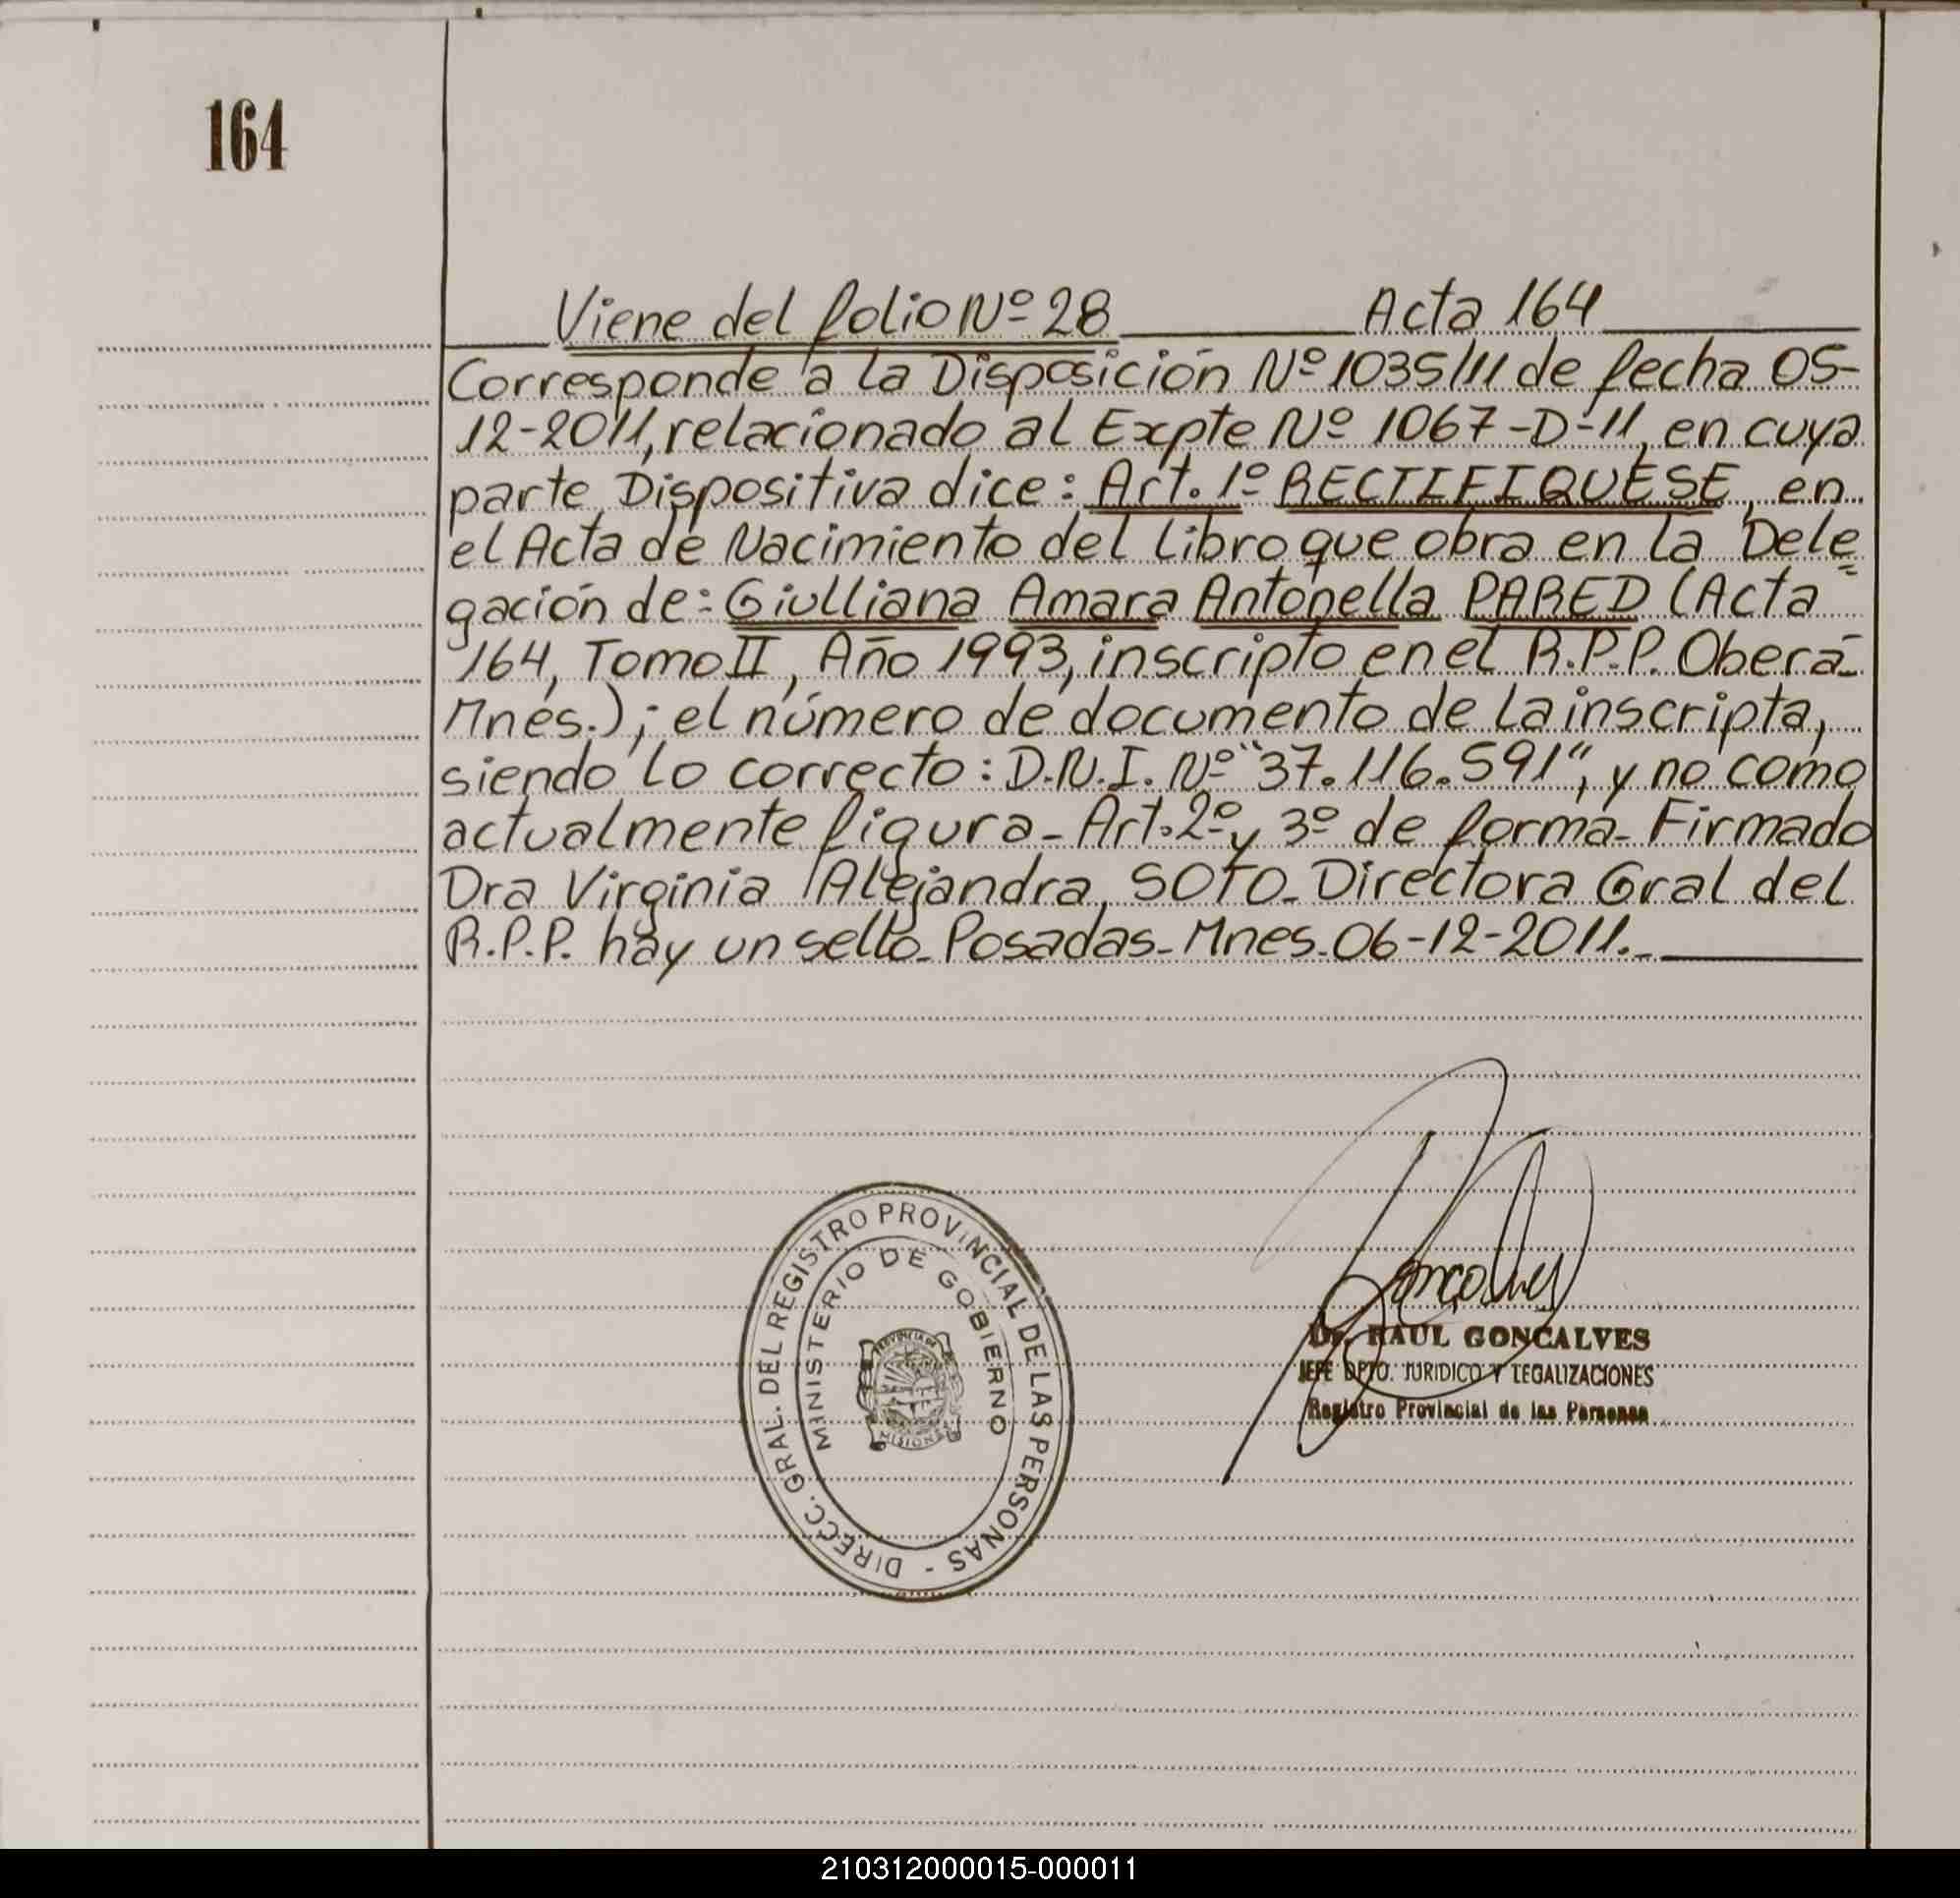 164
Viene del folio Nº 28 Acta 164
Corresponde a la Disposición Nº 1035/11 de fecha 05-
12-2011, relacionado al Expte Nº 1067-D-11, en cuya
parte Dispositiva dice: Art. 1º RECTIFIQUESE, en
el Acta de Nacimiento del Libro que obra en la Dele=
gación de: Giulliana Amara Antonella PARED (Acta
164, Tomo II, Año 1993, inscripto en el R.P.P. Oberá-
Mnes.); el número de documento de la inscripta,
siendo lo correcto: D.N.I. Nº "37.116.591", y no como
actualmente figura- Art. 2º y 3º de forma- Firmado
Dra Virginia Alejandra SOTO- Directora Gral del
R.P.P. hay un sello- Posadas- Mnes- 06-12-2011.-
DIRECC. GRAL. DEL REGISTRO PROVINCIAL DE LAS PERSONAS -
MINISTERIO DE GOBIERNO
PROVINCIA DE
MISIONES
Goncalves
Dr. RAUL GONCALVES
JEFE DPTO. JURIDICO Y LEGALIZACIONES
Registro Provincial de las Personas
210312000015-000011